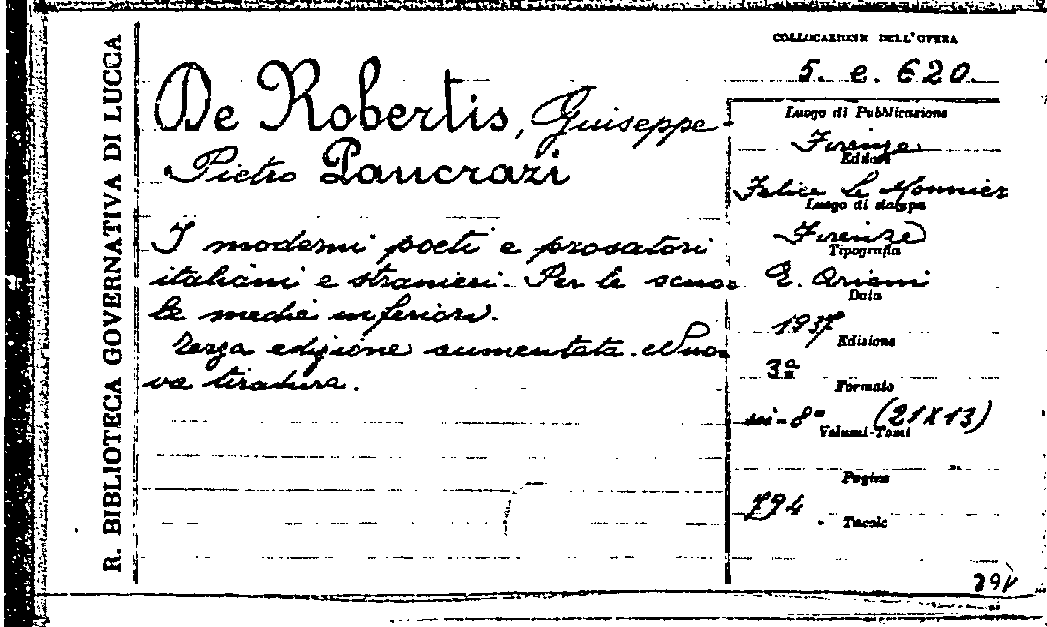 R. BIBLIOTECA GOVERNATIVA DI LUCCA
De Robertis, Giuseppe -
Pietro Pancrazi
I moderni poeti e prosatori
italiani e stranieri. Per le scuo=
le medie inferiori.
Terza edizione aumentata. Nuo=
va tiratura.
COLLOCAZIONE DELL'OPERA
5. e. 620.
Luogo di Pubblicazione
Firenze
Editore
Felice Le Monnier
Luogo di stampa
Firenze
Tipografia
E. Ariani
Data
1937
Edizione
3ª
Formato
in-8° (21X13)
Volumi-Tomi
Pagine
794.
Tavole